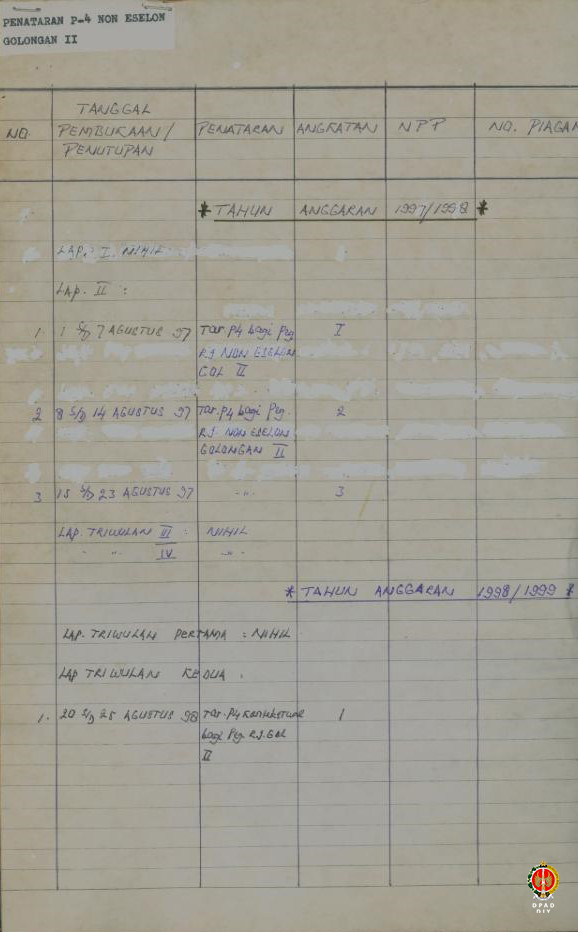 PENATARAN P-4 NON ESELON
GOLONGAN II
NO. TANGGAL PEMBUKAAN/ PENUTUPAN PENATARAN ANGKATAN NPP NO. PIAGAM
* TAHUN ANGGARAN 1997/1998 *
LAP. I. NIHIL
LAP. II :
1. 1 S/D 7 AGUSTUS 97 Tar P4 bagi Peg I
R.J NON ESELON
GOL II
2 8 S/D 14 AGUSTUS 97 Tar.P4 bagi Peg. 2
R.J. NON ESELON
GOLONGAN II
3 15 S/D 23 AGUSTUS 97 -"- 3
LAP. TRIWULAN III : NIHIL
" " IV -"-
* TAHUN ANGGARAN 1998/1999 *
LAP. TRIWULAN PERTAMA : NIHIL
LAP TRIWULAN KEDUA .
1. 20 S/D 25 AGUSTUS 98 Tar. P4 1
bagi Peg. R.J. Gol
II
DPAD
DIY